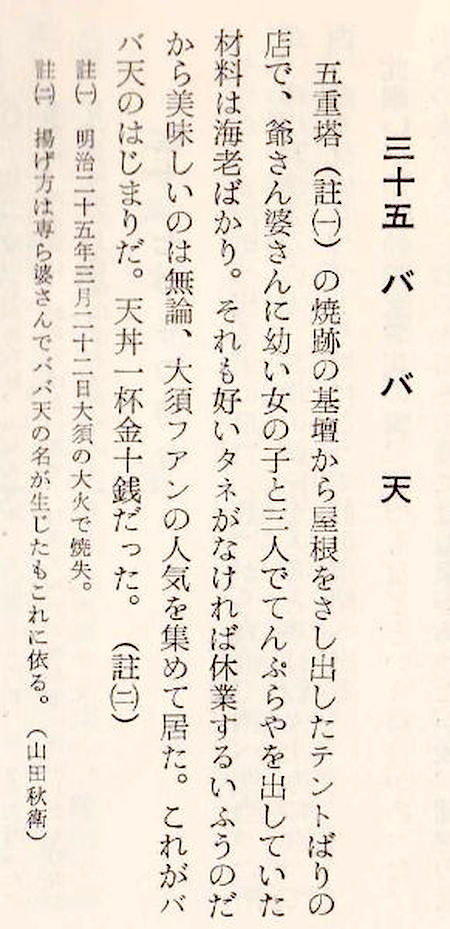 三十五 ババ天
五重塔（註㈠）の焼跡の基壇から屋根をさし出したテントばりの
店で、爺さん婆さんに幼い女の子と三人でてんぷらやを出していた
材料は海老ばかり。それも好いタネがなければ休業するいふうのだ
から美味しいのは無論、大須フアンの人気を集めて居た。これがバ
バ天のはじまりだ。天丼一杯金十銭だった。（註㈡）
註㈠ 明治二十五年三月二十二日大須の大火で焼失。
註㈡ 揚げ方は専ら婆さんでババ天の名が生じたもこれに依る。（山田秋衛）